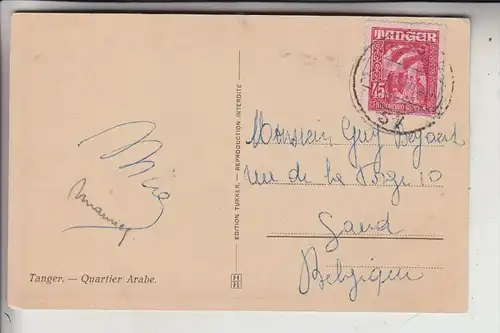 TANGER
45
Monsieur, Guy Bogaert
rue de la Forge 10
Gand
Belgique
EDITION TURKER. — REPRODUCTION INTERDITE
Tanger. — Quartier Arabe.